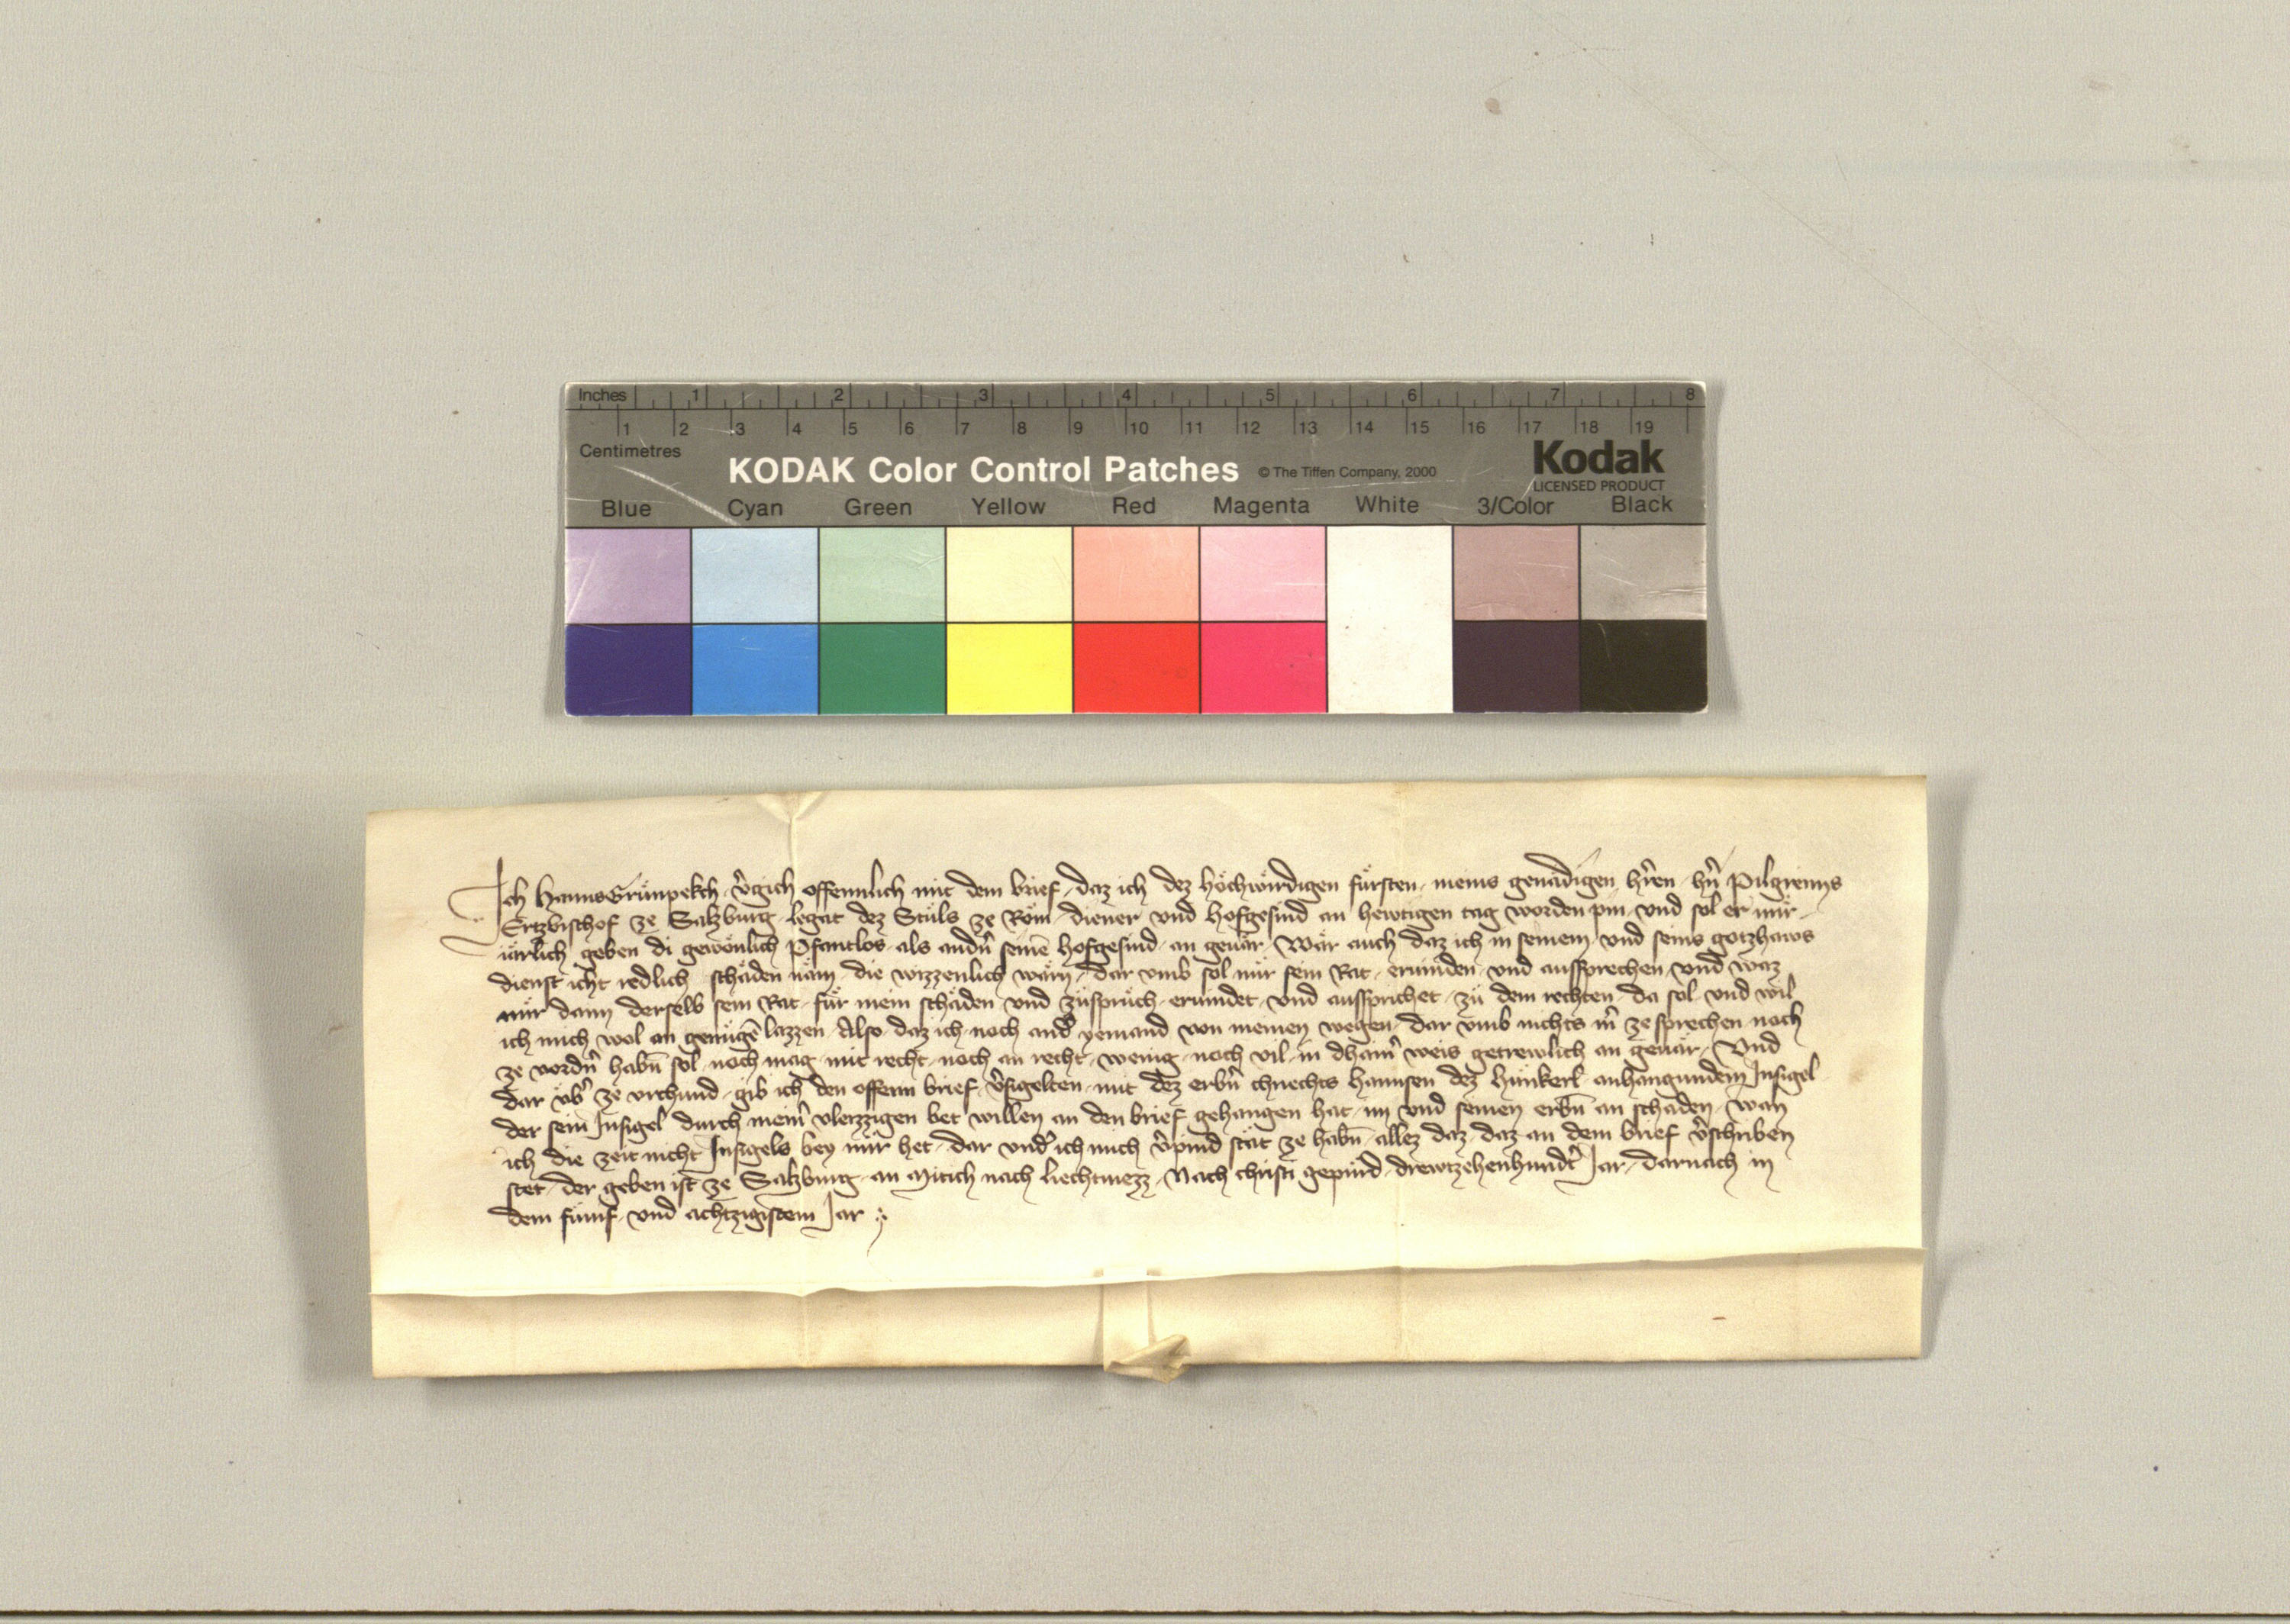 Inches 1 2 3 4 5 6 7 8
1 2 3 4 5 6 7 8 9 10 11 12 13 14 15 16 17 18 19
Centimetres
KODAK Color Control Patches © The Tiffen Company, 2000 Kodak
LICENSED PRODUCT
Blue Cyan Green Yellow Red Magenta White 3/Color Black
Ich Hanns Grünpekch v̾gich offennlich mit dem brief, daz ich dez höchwirdigen fürsten, meins genädigen h̾ren, hn̾ Pilgreims
Ertzbischof ze Salzburg, legat dez Stuls ze Rom, diener vnd hofgesind an hewtigen tag worden pin, vnd sol er mir
iärlich geben di gewönlich Pfantlos, als andn̾ seinē hofgesind, an geuär, Wär auch daz ich in seinem, vnd seins gotzhaws
dienst icht redlich schäden näm, die wizzenlich wärn, dar vmb sol mir sein Rat, eruinden, vnd aussprechen, vnd waz
mir dann derselb sein Rat, für mein schäden, vnd züsprüch, eruindet, vnd aussprichet, zü dem rechten, da sol, vnd wil
ich mich wol an genügē lazzen, Also, daz ich, noch and̾ yemand von meinen wegen, dar vmb nichts m̾ ze sprechen, noch
ze vordn̾ habn̄ sol, noch mag, mit recht, noch an recht, wenig, noch vil, in dhain̾ weis getrewlich an geuär, Vnd
dar üb̾ ze vrchund, gib ich den offenn brief, v̾sigelten, mit dez erbn̾ chnechts hannsen dez hünkerl anhangundem Insigel
der sein Insigel durch mein̾ vleizzigen bet willen an den brief gehangen hat, im vnd seinen erbn̄ an schaden, wan
ich die zeit nicht Insigels bey mir het, dar vnd̾ ich mich v̾pind stät ze habn̄, allez daz, daz an dem brief v̾schriben
stet, der geben ist ze Salzburg, an Mitich nach liechtmezz, Nach christi gepürd, drewtzehenhundt̾ Iar, darnach in
dem fümf, vnd achtzigistem Iar